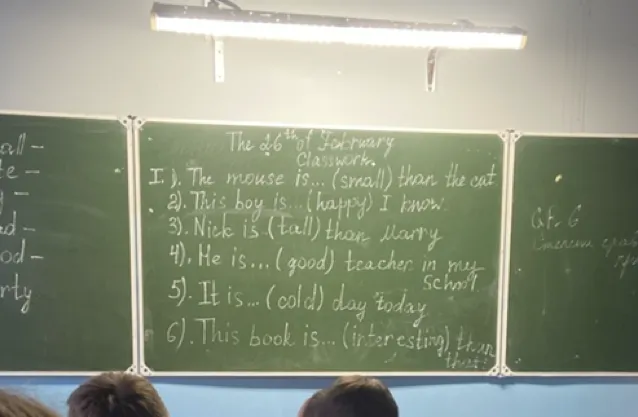 all -
te -
y -
ad -
od -
rty
The 26th of February
Classwork.
I. 1). The mouse is... (small) than the cat
2). This boy is... (happy) I know.
3). Nick is (tall) than Marry
4). He is... (good) teacher in my
school
5). It is... (cold) day today
6). This book is... (interesting) than
that